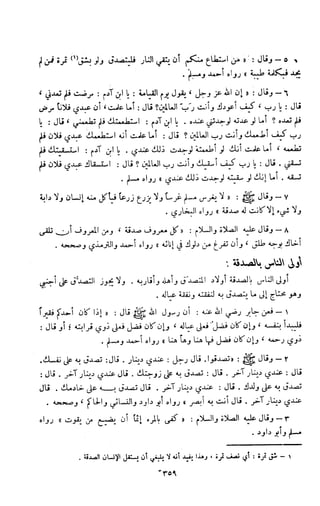 ٥ - وقال : « من استطاع منكم أن يتقي النار فليتصدق ولو بشق(١) تمرة فمن لم
يجد فبكلمة طيبة » رواه أحمد ومسلم .
٦ - وقال : « إن الله عز وجل ، يقول يوم القيامة : يا ابن آدم : مرضت فلم تعدني ،
قال : يا رب ، كيف أعودك وأنت رب العالمين؟ قال : أما علمت أن عبدي فلاناً مرض
فلم تعده ؟ أما لو عدته لوجدتني عنده . يا ابن آدم : استطعمتك فلم تطعمني ، قال : يا
رب كيف أطعمك وأنت رب العالمين ؟ قال : أما علمت أنه استطعمك عبدي فلان فلم
تطعمه ، أما علمت أنك لو أطعمته لوجدت ذلك عندي . يا ابن آدم : استسقيتك فلم
تسقني . قال : يا رب كيف أسقيك وأنت رب العالمين ؟ قال : استسقاك عبدي فلان فلم
تسقه . أما إنك لو سقيته لوجدت ذلك عندي » رواه مسلم .
٧ - وقال ﷺ : « لا يغرس مسلم غرساً ولا يزرع زرعاً فيأكل منه إنسان ولا دابة
ولا شيء إلا كانت له صدقة » رواه البخاري .
٨ - وقال عليه الصلاة والسلام : « كل معروف صدقة ، ومن المعروف أن تلقى
أخاك بوجه طلق ، وأن تفرغ من دلوك في إنائه » رواه أحمد والترمذي وصححه .
أولى الناس بالصدقة :
أولى الناس بالصدقة أولاد المتصدق وأهله وأقاربه . ولا يجوز التصدق على أجنبي
وهو محتاج إلى ما يتصدق به لنفقته ونفقة عياله .
١ - فعن جابر رضي الله عنه : أن رسول الله ﷺ قال : « إذا كان أحدكم فقيراً
فليبدأ بنفسه ، وإن كان فضل فعلى عياله ، وإن كان فضل فعلى ذوي قرابته ، أو قال :
ذوي رحمه ، وإن كان فضل فها هنا وها هنا » رواه أحمد ومسلم .
٢ - وقال ﷺ : «تصدقوا. قال رجل : عندي دينار . قال: تصدق به على نفسك.
قال : عندي دينار آخر . قال : تصدق به على زوجتك. قال عندي دينار آخر . قال :
تصدق به على ولدك . قال : عندي دينار آخر . قال تصدق به على خادمك . قال
عندي دينار آخر. قال أنت به أبصر » رواه أبو داود والنسائي والحاكم ، وصححه .
٣ - وقال عليه الصلاة والسلام : « كفى بالمرء إثماً أن يضيع من يقوت » رواه
مسلم وأبو داود .
١ - شق تمرة : أي نصف تمرة ، وهذا يفيد أنه لا ينبغي أن يستقل الإنسان الصدقة .
٣٥٩